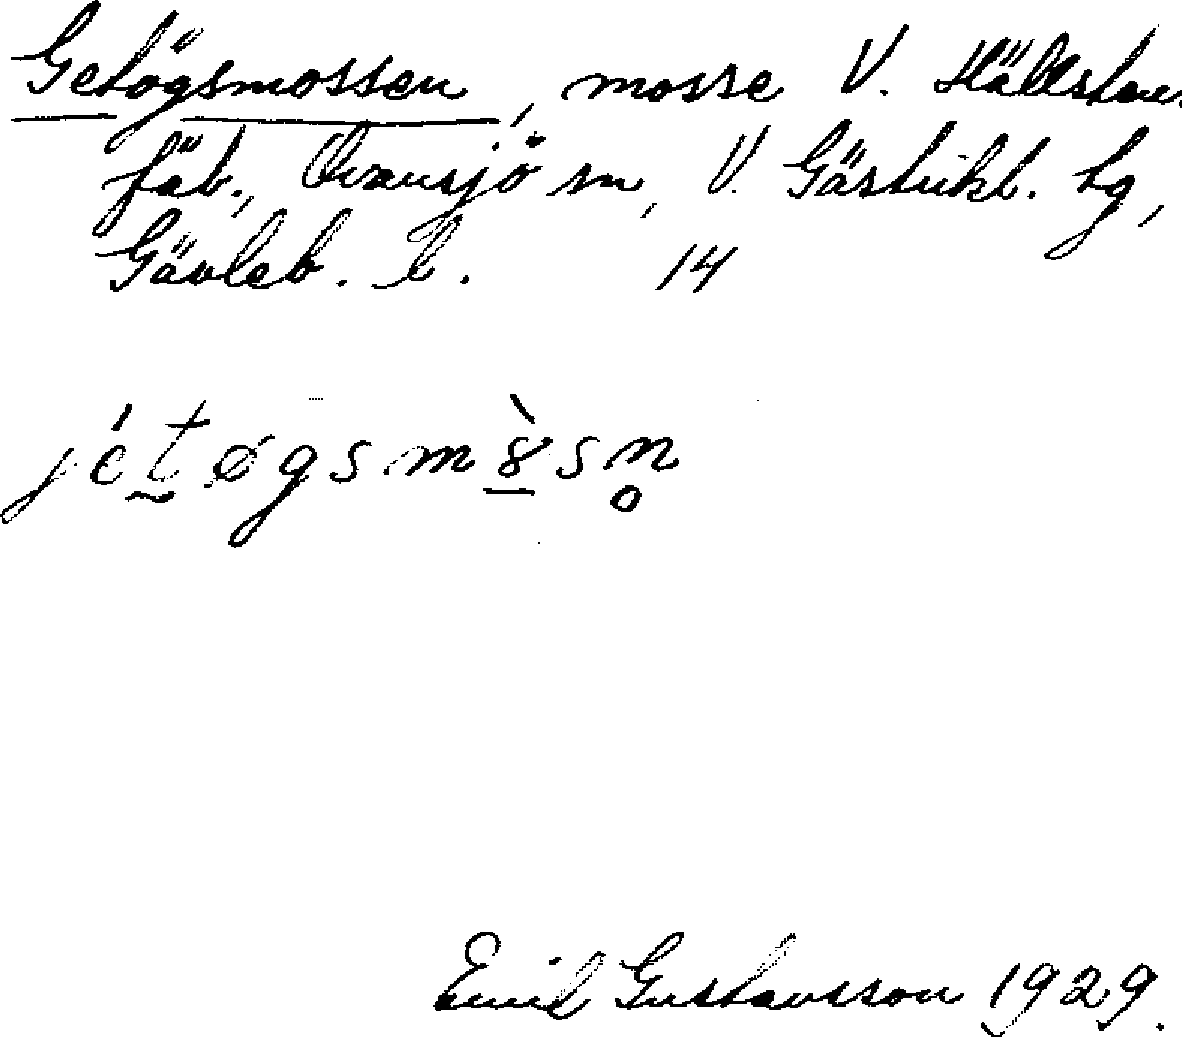 Getögsmossen, mosse V. Hällstau.
fäb., Ovansjö sn, V. Gästrikl. tg,
Gävleb. l. 14
jétøgsmȣ̠̀sn̥
Emil Gustavsson 1929.